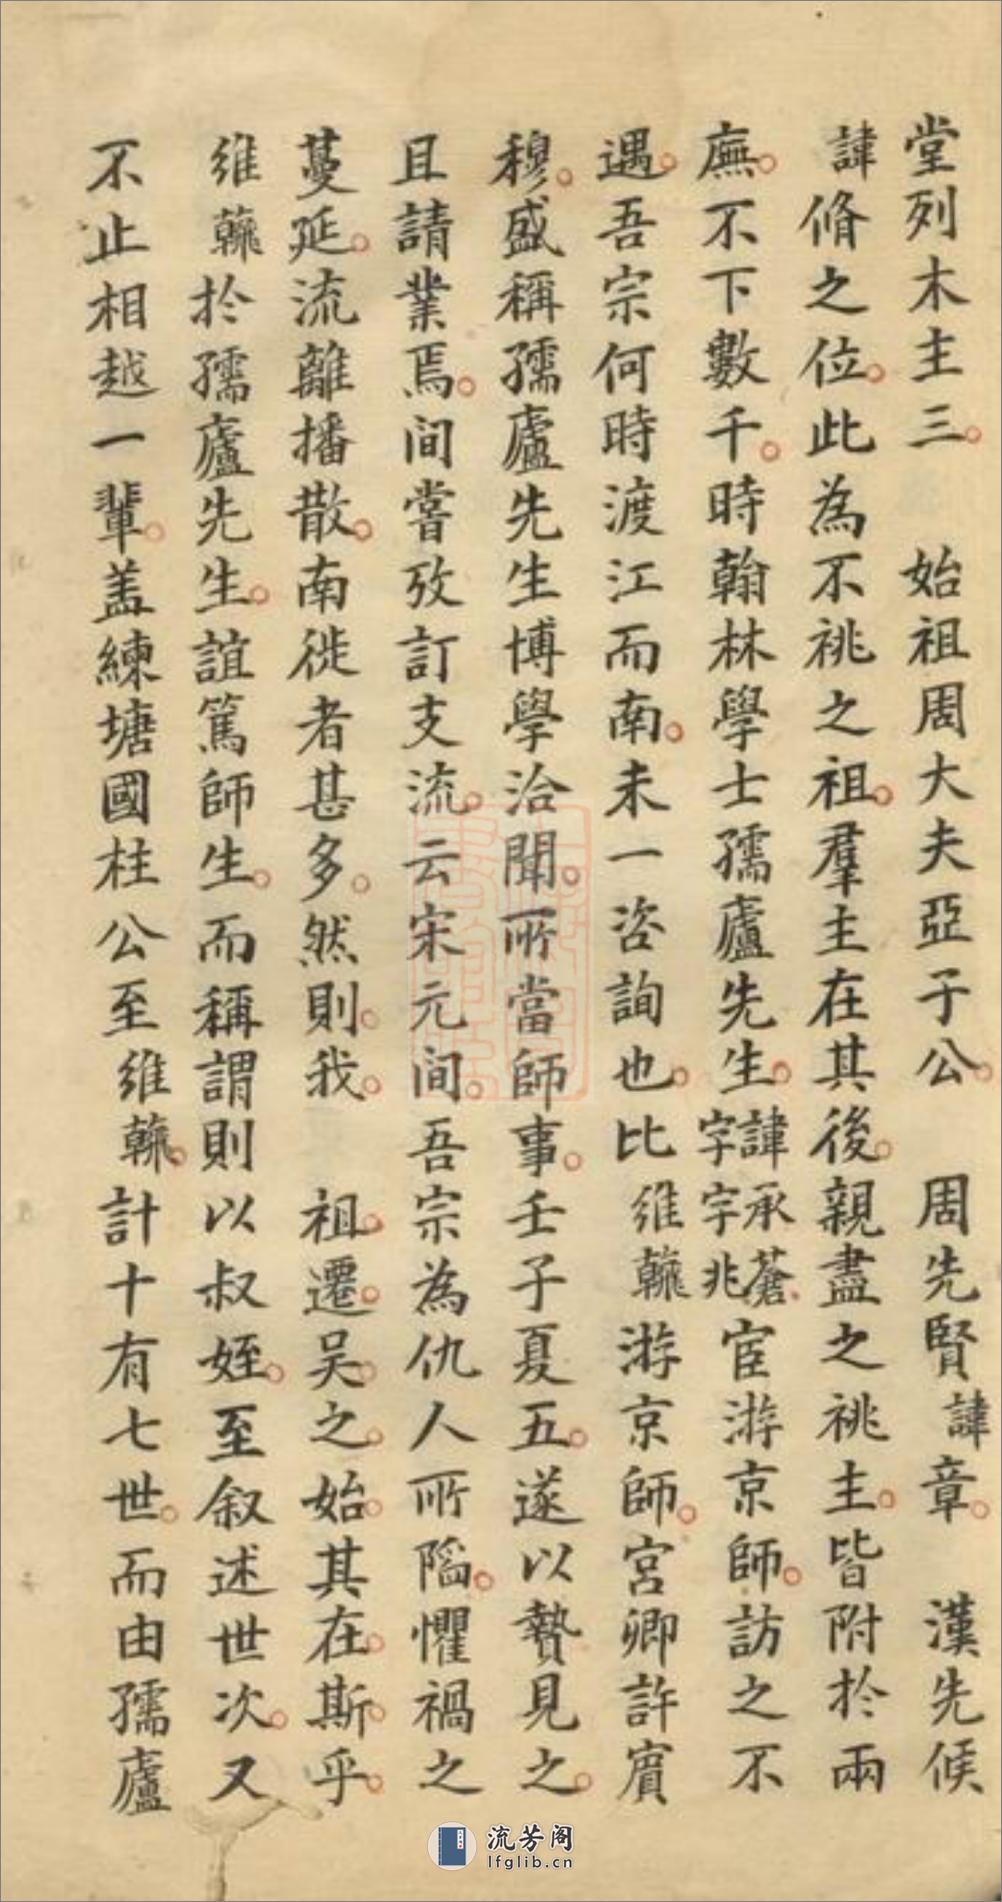 堂列木主三。始祖周大夫亞子公。周先賢諱章。漢先候
諱脩之位。此為不祧之祖。羣主在其後。親盡之祧主。皆附於兩
廡。不下數千。時翰林學士孺廬先生。諱承蒼。字字兆宦游京師。訪之不
遇。吾宗何時渡江而南。未一咨詢也。比維翰游京師。宮卿許賓
穆。盛稱孺廬先生博學洽聞。所當師事。壬子夏五。遂以贄見之。
且請業焉。間嘗攷訂支流。云宋元间。吾宗為仇人所陷。懼禍之
蔓延。流離播散。南徙者甚多。然則。我。祖。遷。吴。之。始。其在。斯。乎。
維於孺廬先生。誼篤師生。而稱謂則以叔姪。至叙述世次。又
不止相越一輩。盖練塘國柱公至維計十有七世。而由孺廬
流芳阁
lfglib.cn